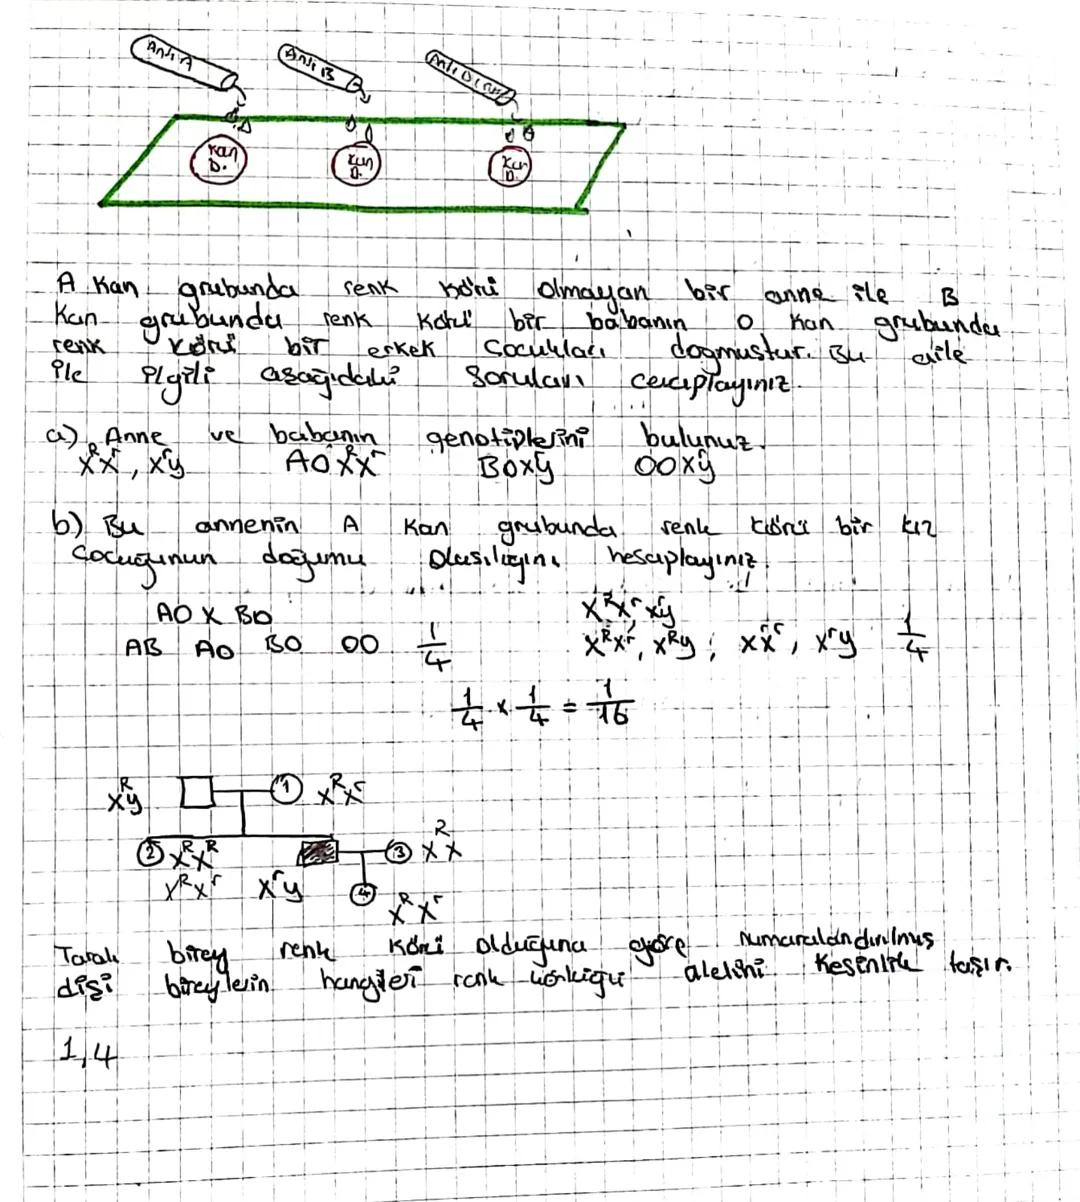 Anti A Anti B Anti D
Kan D. Kan D. Kan D.
A Kan grubunda renk körü olmayan bir anne ile B
Kan grubunda renk körü bir babanın O Kan grubunda
renk körü bir erkek Cocukları dogmustur. Bu aile
ile ilgili asağıdaki Soruları cevaplayınız.
a) Anne ve babanın genotiplerini bulunuz.
XᴿXʳ, Xʳy AOXᴿXʳ BOXʳy OOXʳy
b) Bu annenin A Kan grubunda renk körü bir kız
Cocuğunun doğumu Olasılığını hesaplayınız.
AO X BO XᴿXʳ Xʳy
AB AO BO OO 1/4 XᴿXʳ, Xᴿy ; XʳXʳ, Xʳy 1/4
1/4 x 1/4 = 1/16
Xᴿy 1 XᴿXʳ
2 XᴿXᴿ 3 XᴿX
XᴿXʳ Xʳy 4
XᴿXʳ
Taralı birey renk Körü olduğuna göre numaralandırılmış
dişi bireylerin hangileri renk körlüğü alelini Kesinlikle taşır.
1,4